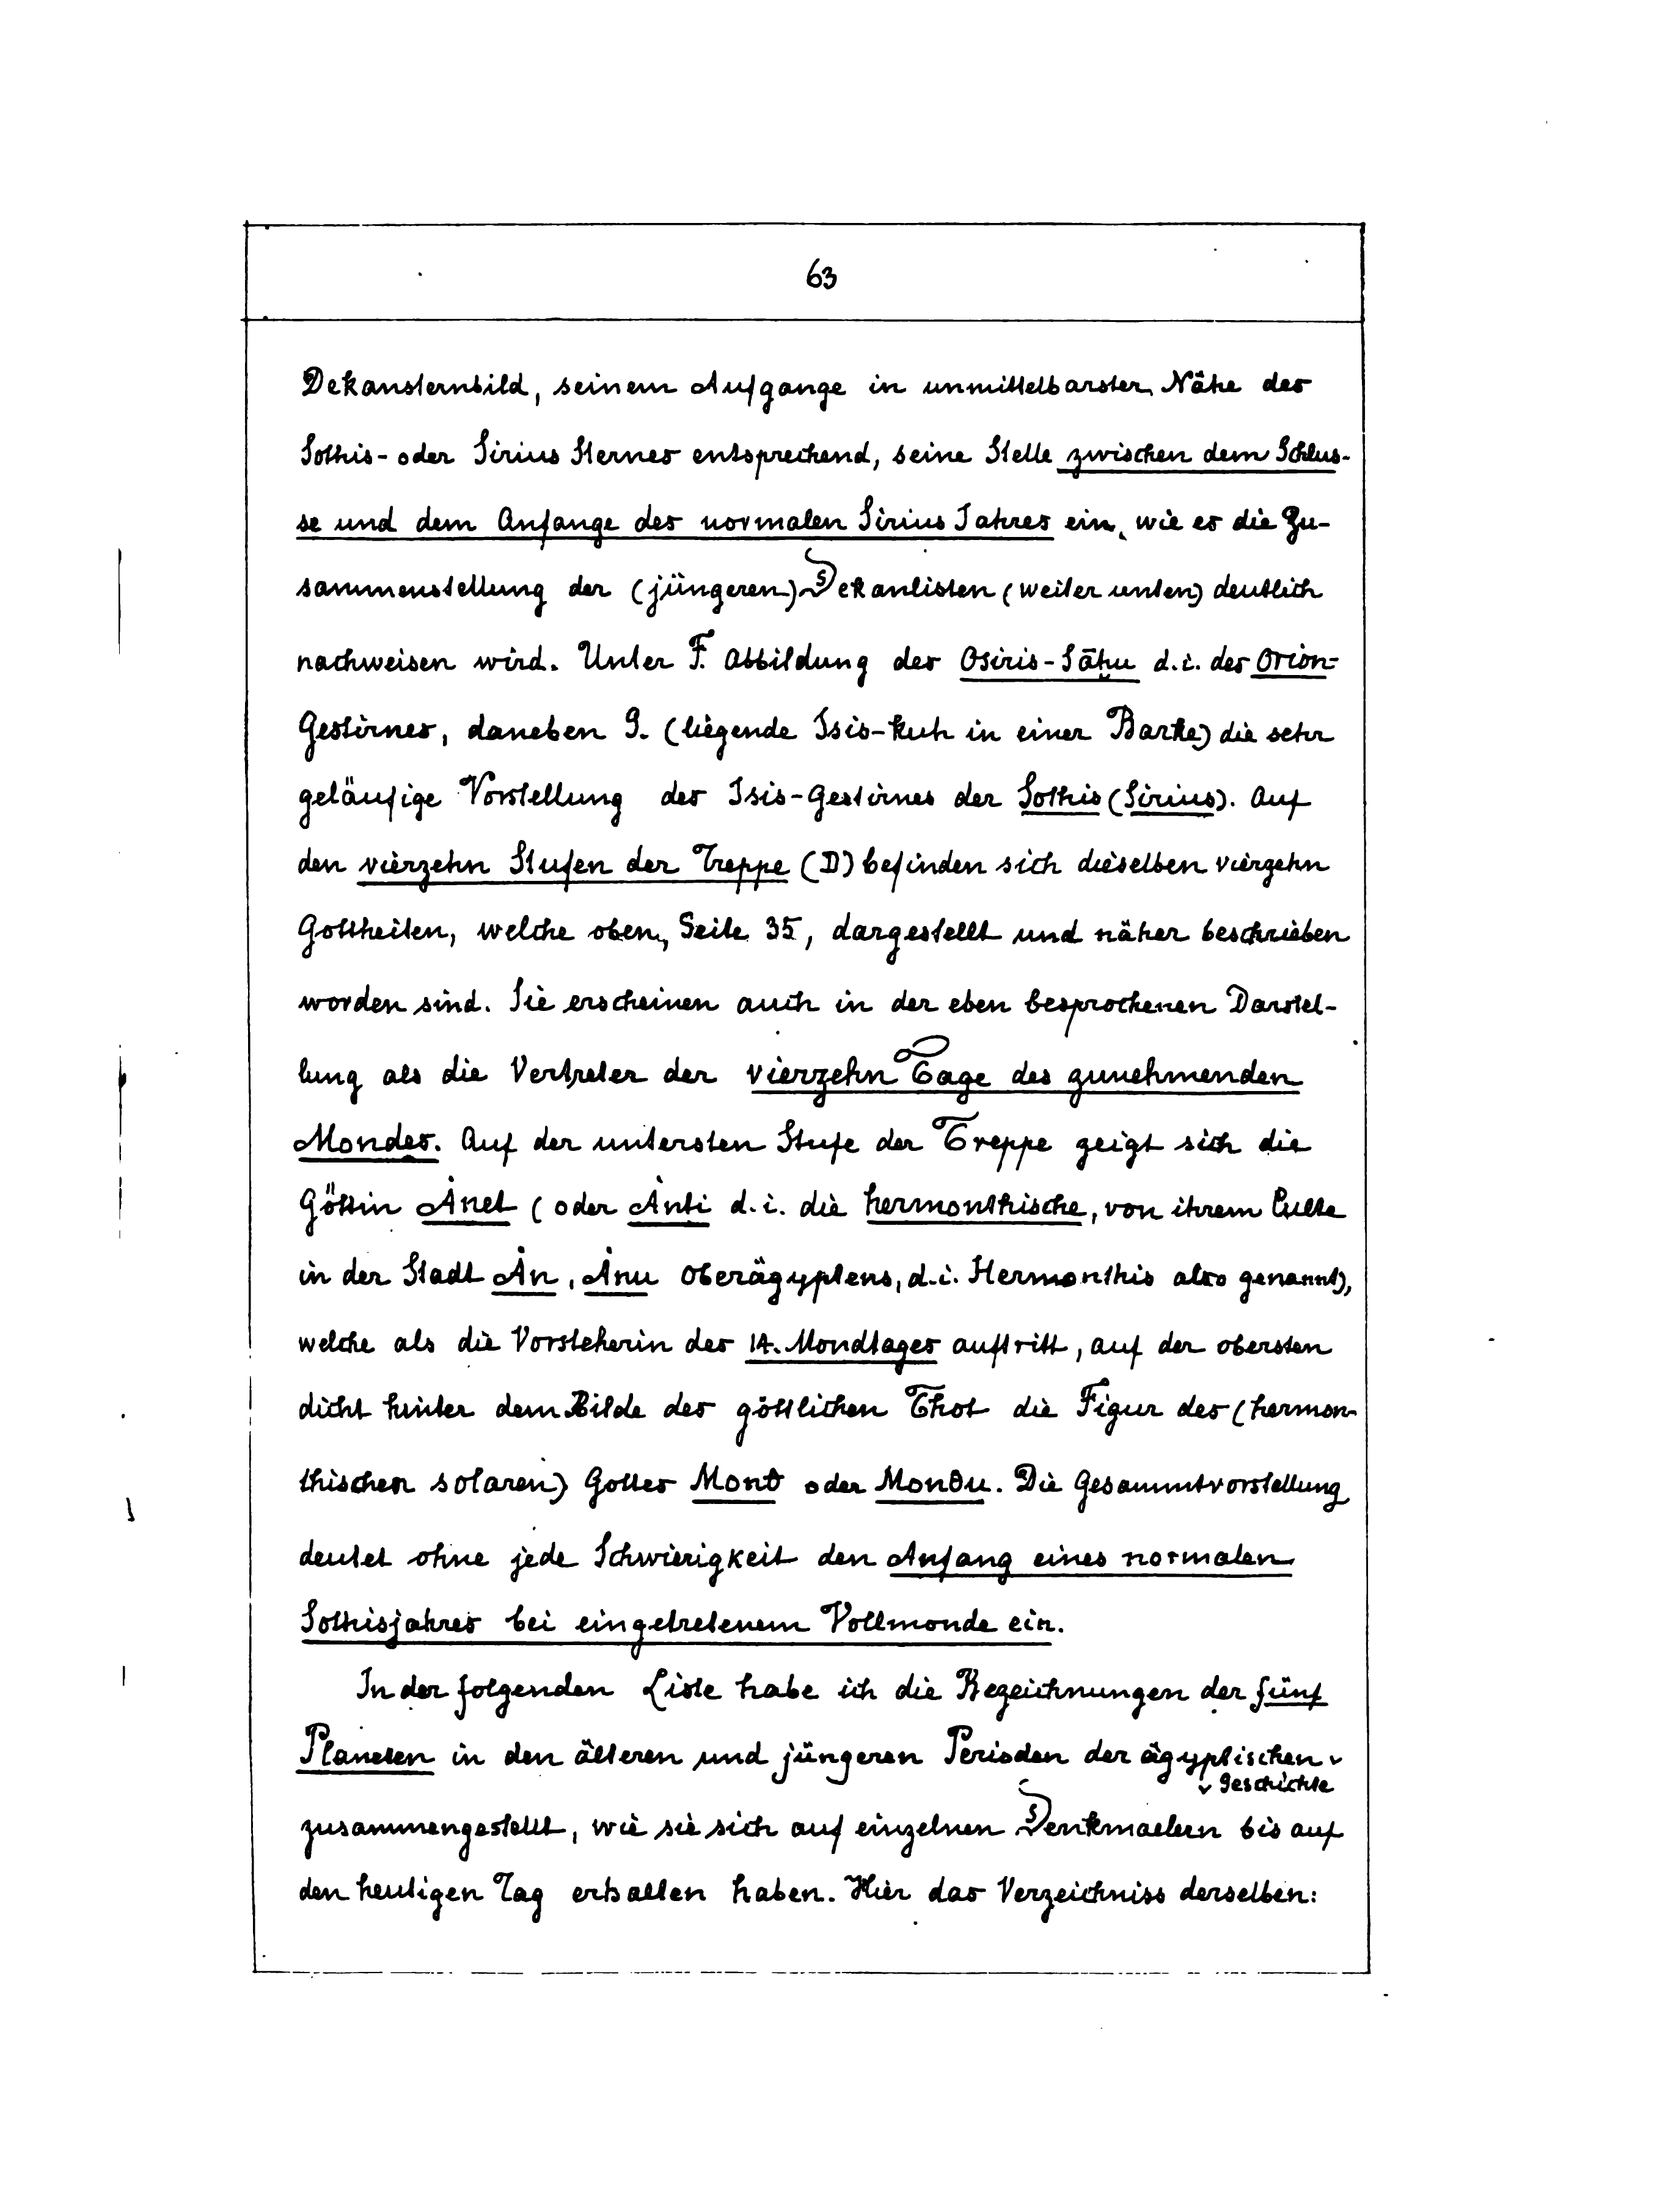 63
Dekansternbild, seinem Aufgange in unmittelbarster Nähe des
Sothis- oder Sirius Sternes entsprechend, seine Stelle zwischen dem Schlus-
se und dem Anfange des normalen Sirius Jahres ein, wie es die Zu-
sammenstellung der (jüngeren) Dekanlisten (weiter unten) deutlich
nachweisen wird. Unter F. Abbildung des Osiris-Sāḥu d.i. des Orion-
Gestirnes, daneben G. (liegende Isis-Kuh in einer Barke) die sehr
geläufige Vorstellung des Isis-Gestirnes der Sothis (Sirius). Auf
den vierzehn Stufen der Treppe (D) befinden sich dieselben vierzehn
Gottheiten, welche oben, Seite 35, dargestellt und näher beschrieben
worden sind. Sie erscheinen auch in der eben besprochenen Darstel-
lung als die Vertreter der vierzehn Tage des zunehmenden
Mondes. Auf der untersten Stufe der Treppe zeigt sich die
Göttin Ȧnet (oder Ȧnti d.i. die hermonthische, von ihrem Culte
in der Stadt Ȧn, Ȧnu Oberägyptens, d.i. Hermonthis also genannt),
welche als die Vorsteherin des 14. Mondtages auftritt, auf der obersten
dicht hinter dem Bilde des göttlichen Thot die Figur des (hermon-
thischen solaren) Gottes Mont oder Monϑu. Die Gesammtvorstellung
deutet ohne jede Schwierigkeit den Anfang eines normalen
Sothisjahres bei eingetretenem Vollmonde ein.
In der folgenden Liste habe ich die Bezeichnungen der fünf
Planeten in den älteren und jüngeren Perioden der ägyptischen
Geschichte
zusammengestellt, wie sie sich auf einzelnen Denkmaelern bis auf
den heutigen Tag erhalten haben. Hier das Verzeichniss derselben: